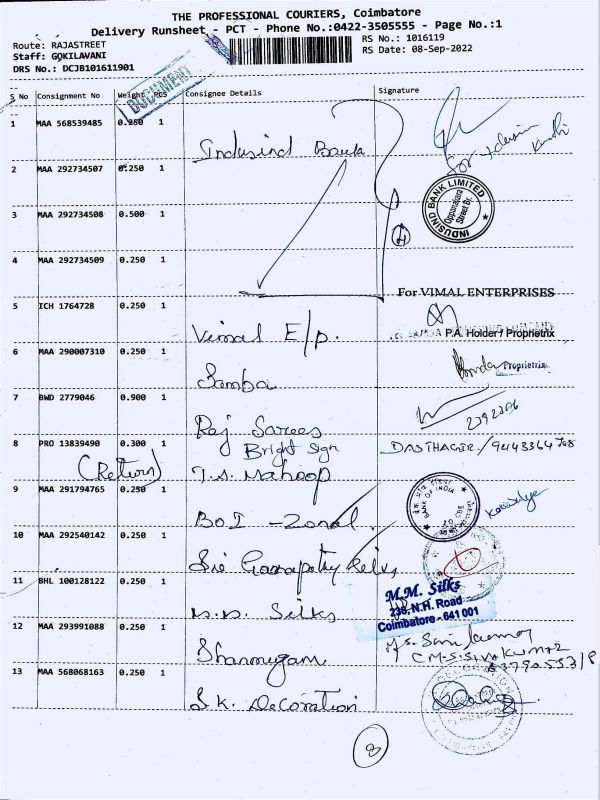 THE PROFESSIONAL COURIERS, Coimbatore
Delivery Runsheet - PCT - Phone No.:0422-3505555 - Page No.:1
Route: RAJASTREET
Staff: GOKILAVANI
DRS No.: DCJB101611901
RS No.: 1016119
RS Date: 08-Sep-2022
DOCUMENT
S No Consignment No Weight PCS Consignee Details Signature
1 MAA 568539485 0.250 1 Indusind Bank
INDUSIND BANK LIMITED
Oppanakara Street Br.
2 MAA 292734507 0.250 1
3 MAA 292734508 0.500 1
4 MAA 292734509 0.250 1
For VIMAL ENTERPRISES
5 ICH 1764728 0.250 1 Vimal E/p.
P.A. Holder / Proprietrix
6 MAA 290007310 0.250 1 Samba
Proprietrix
7 BWD 2779046 0.900 1 Raj Sarees
8 PRO 13839490 0.300 1 Bright Sign
DASTHAGIR/9443364708
(Return) T.S. Mahoop
9 MAA 291794765 0.250 1 BOI - Zonal
BANK OF INDIA
10 MAA 292540142 0.250 1 Sri Ganapathy Silks
11 BHL 100128122 0.250 1 M.M. Silks
M.M. Silks
238, N.H. Road
Coimbatore - 641 001
12 MAA 293991088 0.250 1 Shanmugam
13 MAA 568068163 0.250 1 S.K. Decoration
8